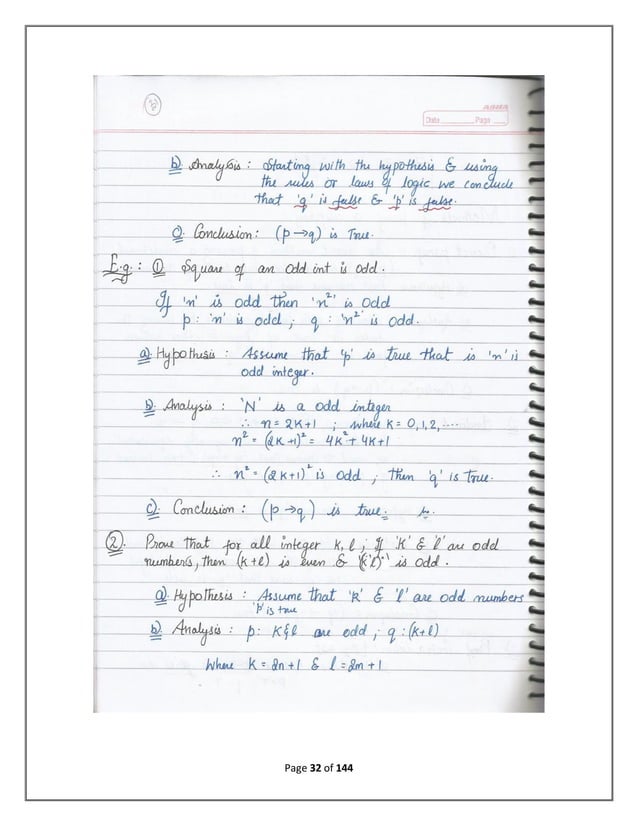 32
AJANTA
Date Page
b) Analysis : Starting with the hypothesis & using
the rules or laws of logic we conclude
that 'q' is false & 'p' is false.
c) Conclusion : (p → q) is True.
E.g : ① Square of an odd int is odd.
If 'n' is odd then 'n²' is odd
p : 'n' is odd ; q : 'n²' is odd.
a) Hypothesis : Assume that 'p' is true that is 'n' is
odd integer.
b) Analysis : 'N' is a odd integer
∴ n = 2K+1 ; where K = 0,1,2,....
n² = (2K+1)² = 4K² + 4K+1
∴ n² = (2K+1)² is odd ; then 'q' is true.
c) Conclusion : (p → q) is true.
②. Prove that for all integer K, l ; If 'K' & 'l' are odd
numbers, then (k+l) is even & (k*l) is odd.
a) Hypothesis : Assume that 'K' & 'l' are odd numbers
'p' is true
b) Analysis : p : K & l are odd ; q : (k+l)
Where K = 2n+1 & l = 2m+1
Page 32 of 144